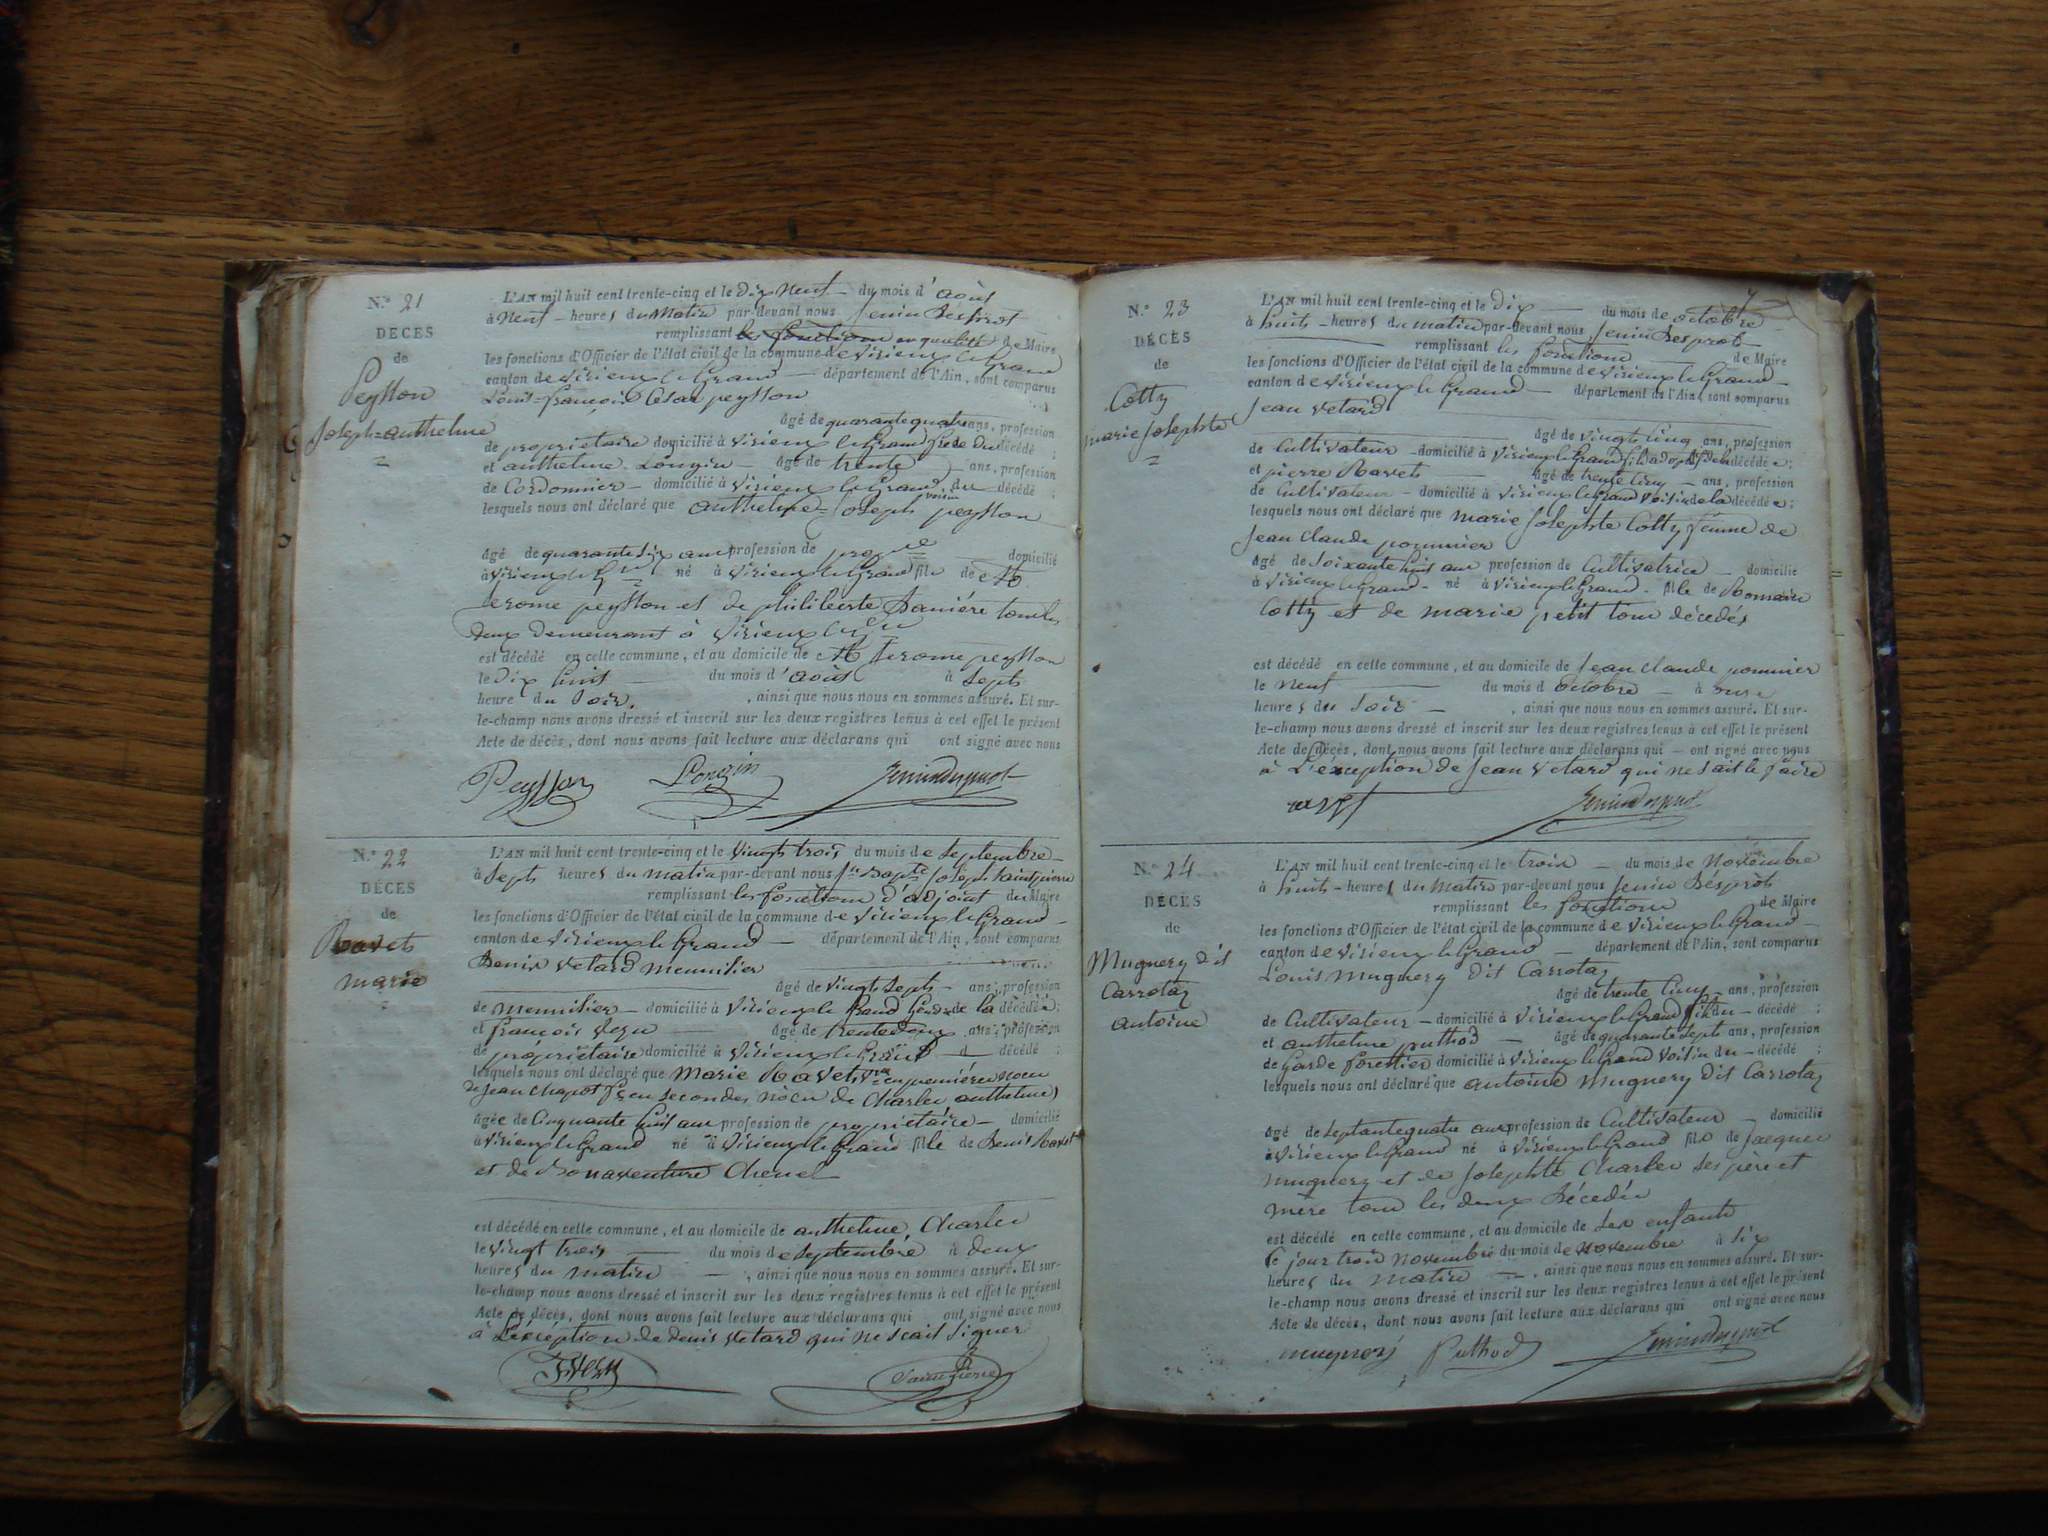 N.° 21
DÉCÈS
de
Peysson
Joseph=anthelme
L'AN mil huit cent trente-cinq et le Dix Neuf du mois d'août
à Neuf heures du Matin par-devant nous Jenin Desprost
remplissant les fonctions en qualité de Maire
les fonctions d'Officier de l'état civil de la commune de Virieux le Grand
canton de Virieux le Grand département de l'Ain, sont comparus
Louis=françois César peysson
âgé de quarante quatre ans, profession
de propriétaire domicilié à Virieux le Grand frere Du décédé ;
et anthelme Longin âgé de trente ans, profession
de Cordonnier domicilié à Virieux le Grand voisin du décédé ;
lesquels nous ont déclaré que anthelme=Joseph peysson
âgé de quarante six ans profession de prop.re domicilié
à Virieux le G.d né à Virieux le Grand fils de
Jerome peysson et de philiberte Daniére tous les
deux demeurant à Virieux le G.d
est décédé en cette commune, et au domicile de Jerome peysson
le Dix huit du mois d'août à Septs
heure du Soir, ainsi que nous nous en sommes assuré. Et sur-
le-champ nous avons dressé et inscrit sur les deux registres tenus à cet effet le présent
Acte de décès, dont nous avons fait lecture aux déclarans qui ont signé avec nous
Peysson Longin Jenindesprost
N.° 22
DÉCÈS
de
Ravets
marie
L'AN mil huit cent trente-cinq et le Vingts trois du mois de Septembre
à Septs heures du matin par-devant nous Jn Bapte Joseph Saintpierre
remplissant les fonctions d'adjoint du Maire
les fonctions d'Officier de l'état civil de la commune de Virieux le Grand
canton de Virieux le Grand département de l'Ain, sont comparus
Denis Vetard Meunisier
âgé de Vingts Septs ans, profession
de Menuisier domicilié à Virieux le Grand Gendre de la décédée ;
et françois âgé de trente deux ans, profession
de propriétaire domicilié à Virieux le Grand d décédé ;
lesquels nous ont déclaré que Marie Ravets Vve en premières noces
de Jean Chapot f.e en secondes noces de Charles anthelme
âgée de Cinquante huit ans profession de propriétaire domicilié
à Virieux le Grand né à Virieux le Grand fille de Denis Ravet
et de Bonaventure Chenel
est décédé en cette commune, et au domicile de anthelme Charles
le Vingt trois du mois de Septembre à deux
heures du matin, ainsi que nous nous en sommes assuré. Et sur-
le-champ nous avons dressé et inscrit sur les deux registres tenus à cet effet le présent
Acte de décès, dont nous avons fait lecture aux déclarans qui ont signé avec nous
à L'éxception de denis Vetard qui ne scait Signer
Saintpierre
N.° 23
DÉCÈS
de
Cotty
marie Josephte
7
L'AN mil huit cent trente-cinq et le Dix du mois de octobre
à huits heures du matin par-devant nous Jenin Desprost
remplissant les fonctions de Maire
les fonctions d'Officier de l'état civil de la commune de Virieux le Grand
canton de Virieux le Grand département de l'Ain, sont comparus
Jean Vetard
âgé de Vingts Cinq ans, profession
de Cultivateur domicilié à Virieux le Grand fils adoptif de la décédée ;
et pierre Ravets âgé de trente Cinq ans, profession
de Cultivateur domicilié à Virieux le Grand Voisin de la décédée ;
lesquels nous ont déclaré que marie Josephte Cotty femme de
Jean Claude pommier
âgé de Soixante huit ans profession de Cultivatrice domicilié
à Virieux le Grand né à Virieux le Grand fille de Romain
Cotty et de marie petit tous décédés
est décédé en cette commune, et au domicile de Jean Claude pommier
le Neuf du mois d'octobre à onze
heures du Soir, ainsi que nous nous en sommes assuré. Et sur-
le-champ nous avons dressé et inscrit sur les deux registres tenus à cet effet le présent
Acte de décès, dont nous avons fait lecture aux déclarans qui ont signé avec nous
à L'éxception de Jean Vetard qui ne Sait le faire
Jenindesprost
N.° 24
DÉCÈS
de
Mugnery dit
Carrotaz
antoine
L'AN mil huit cent trente-cinq et le trois du mois de Novembre
à huits heures du Matin par-devant nous Jenin Désprost
remplissant les fonctions de Maire
les fonctions d'Officier de l'état civil de la commune de Virieux le Grand
canton de Virieux le Grand département de l'Ain, sont comparus
Louis Mugnery Dit Carrotaz
âgé de trente Cinq ans, profession
de Cultivateur domicilié à Virieux le Grand fils du décédé ;
et anthelme puthod âgé de quarante Septs ans, profession
de Garde forettier domicilié à Virieux le Grand Voisin du décédé ;
lesquels nous ont déclaré que antoine Mugnery dit Carrotaz
âgé de Septante quatre ans profession de Cultivateur domicilié
à Virieux le Grand né à Virieux le Grand fils de Jacques
mugnery et de Josephte Charles Ses père et
mère tous les deux Décédés
est décédé en cette commune, et au domicile de Ses enfants
Ce jour trois Novembre du mois de Novembre à Six
heures du matin, ainsi que nous nous en sommes assuré. Et sur-
le-champ nous avons dressé et inscrit sur les deux registres tenus à cet effet le présent
Acte de décès, dont nous avons fait lecture aux déclarans qui ont signé avec nous
mugnery Puthod Jenindesprost